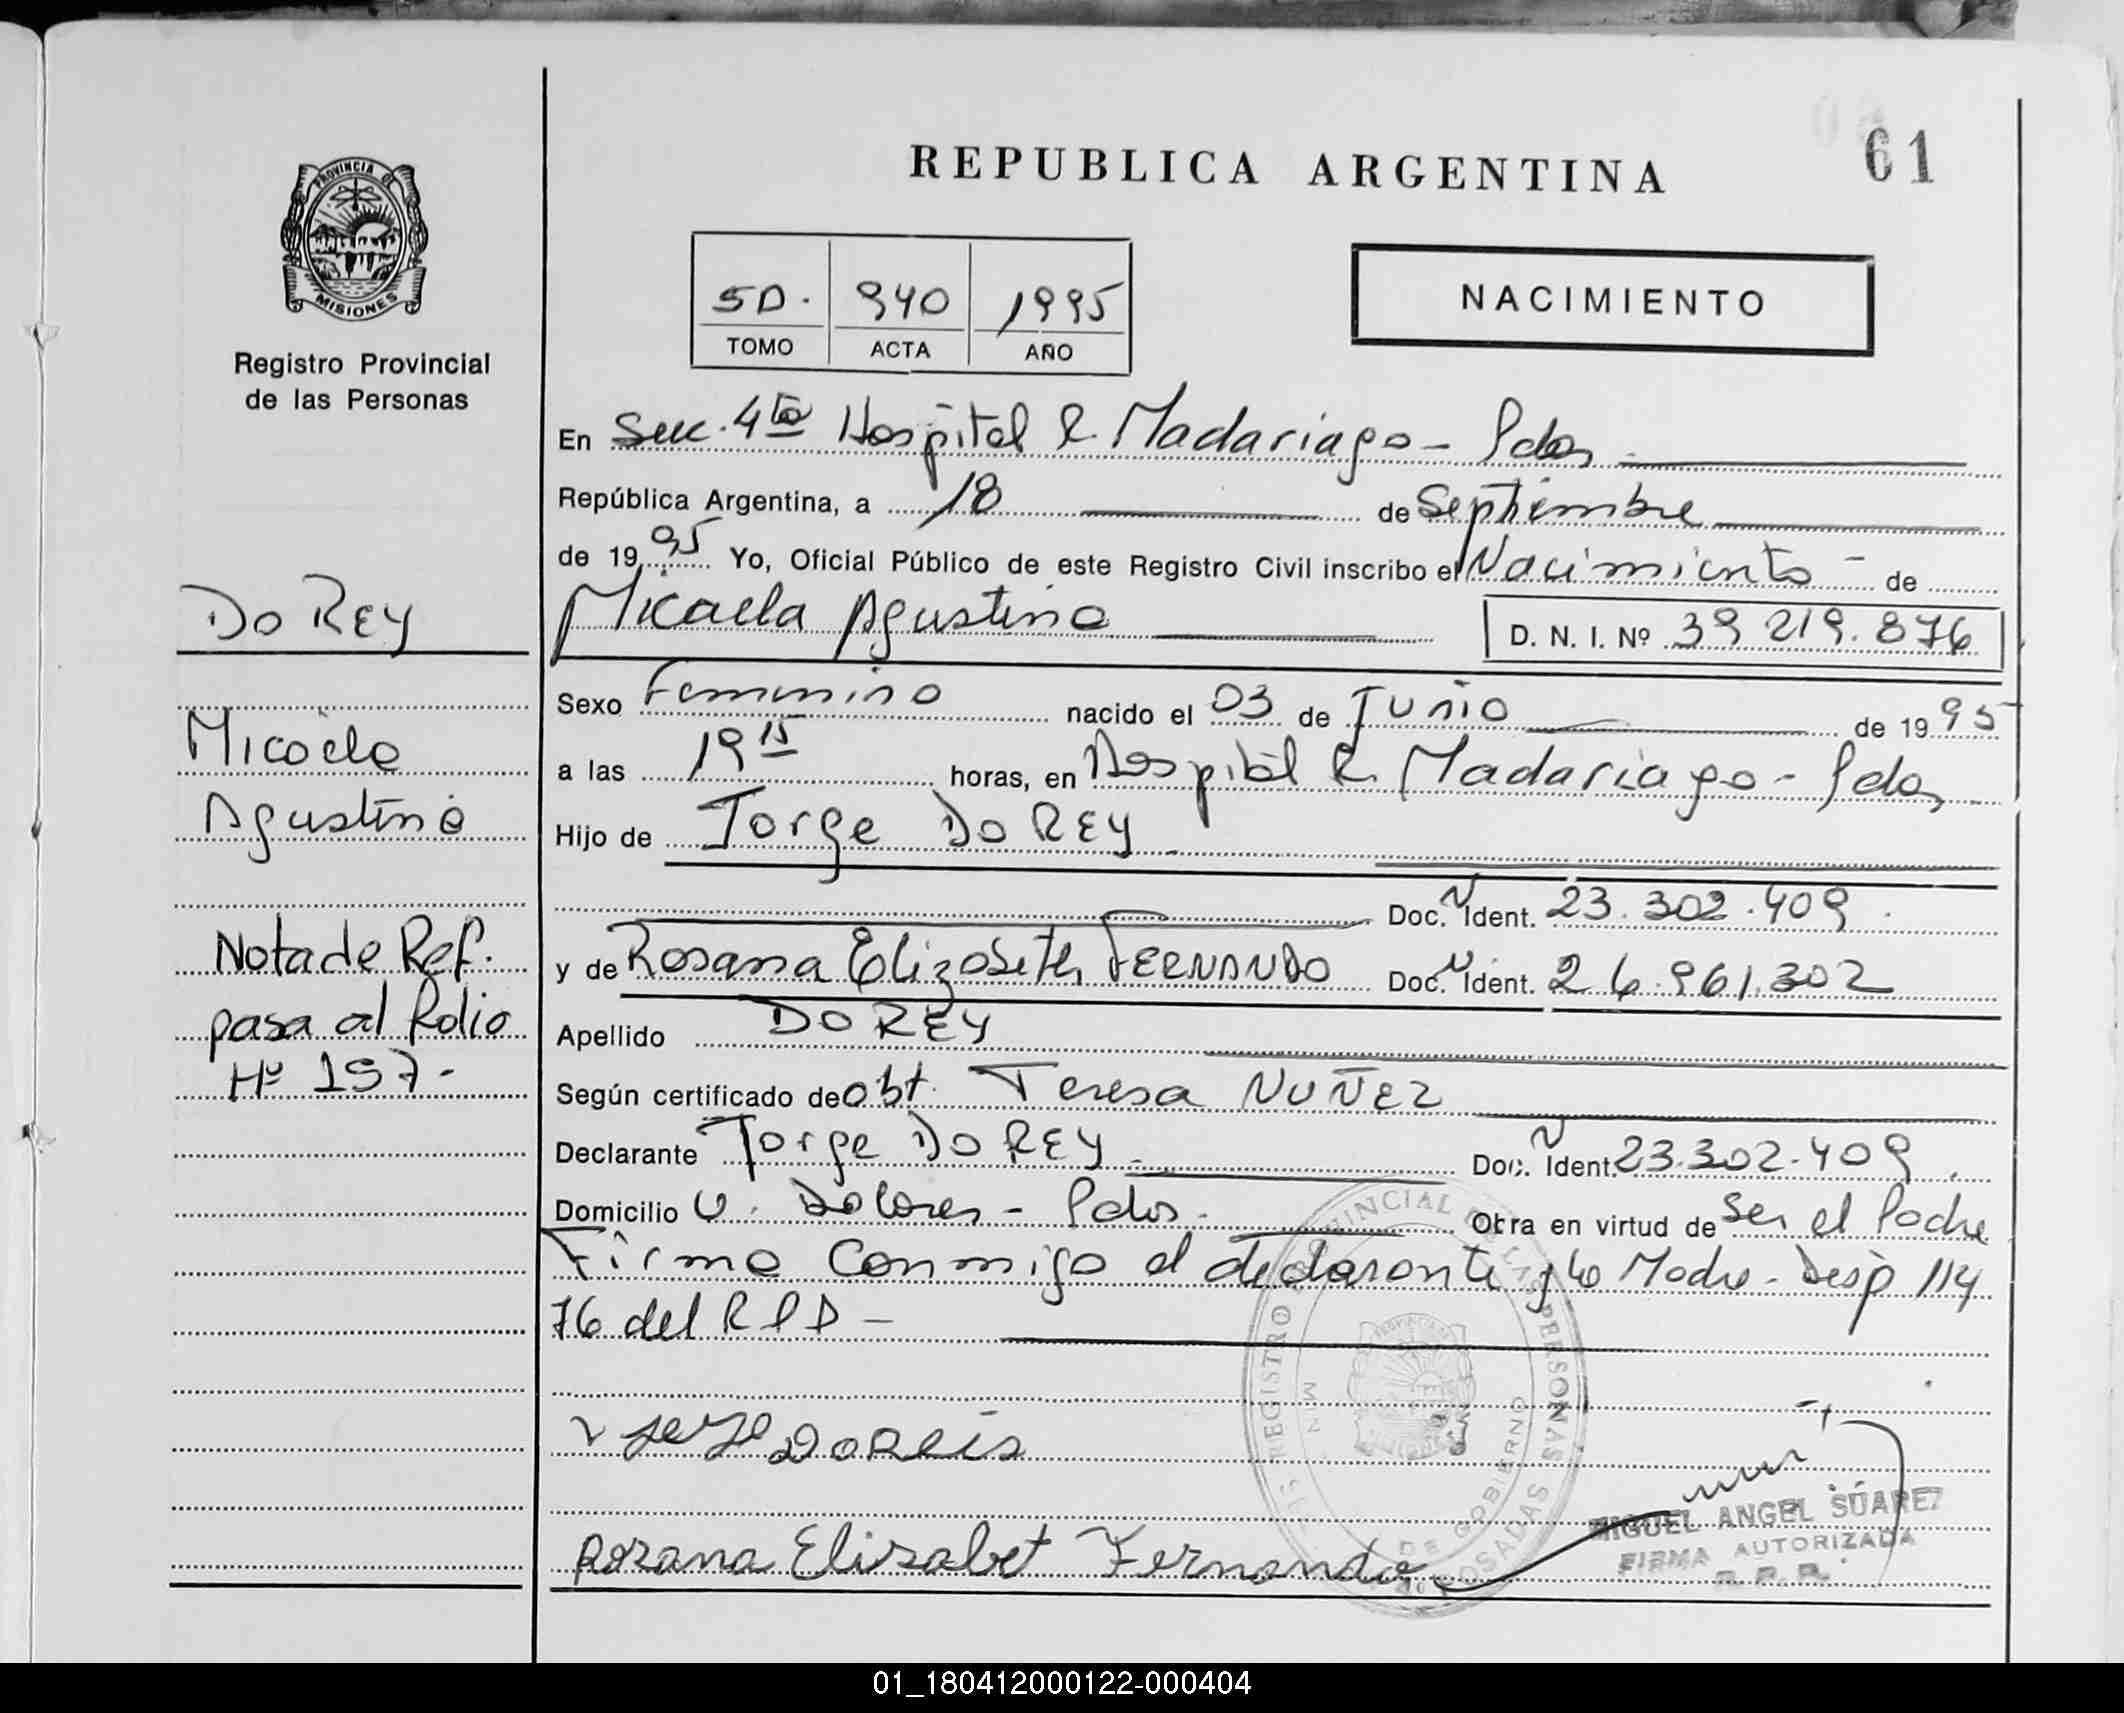 REPUBLICA ARGENTINA
61
PROVINCIA DE
MISIONES
Registro Provincial
de las Personas
5D. 940 1995
TOMO ACTA AÑO
NACIMIENTO
En Secc. 4ta Hospital R. Madariaga - Pdas
República Argentina, a 18 de Septiembre
de 1995 Yo, Oficial Público de este Registro Civil inscribo el Nacimiento - de
Micaela Agustina
D. N. I. Nº 39 219.876
Sexo Femenino nacido el 03 de Junio de 1995
a las 19 15 horas, en Hospital R. Madariaga - Pdas
Hijo de Jorge DO REY
Doc. N Ident. 23.302.409
y de Rosana Elizabeth FERNANDO Doc. N Ident. 26.961.302
Apellido DO REY
Según certificado de obt. Teresa NUÑEZ
Declarante Jorge DO REY Doc. N Ident. 23.302.409
Domicilio V. Dolores - Pdas. Obra en virtud de ser el Padre
Firma Conmigo el declarante y la Madre - Desp 114
76 del R P D -
Jorge DoReis
Rozana Elisabet Fernando
DO REY
Micaela
Agustina
Nota de Ref.
pasa al folio
Nº 197.
REGISTRO PROVINCIAL DE LAS PERSONAS
MIN. DE GOBIERNO
POSADAS
MIGUEL ANGEL SUAREZ
FIRMA AUTORIZADA
01_180412000122-000404